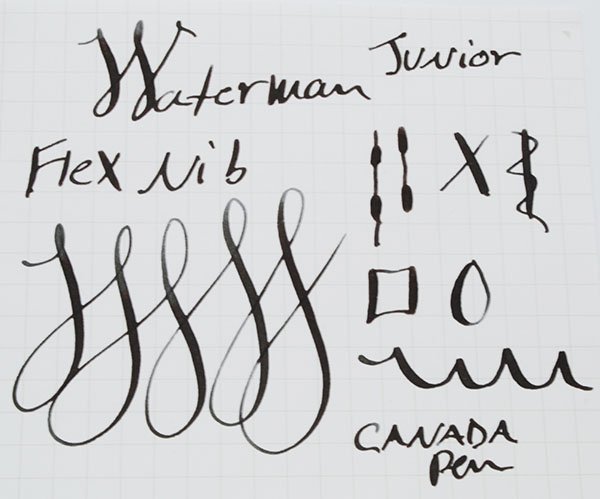 Waterman Junior
Flex Nib
X
CANADA
Pen